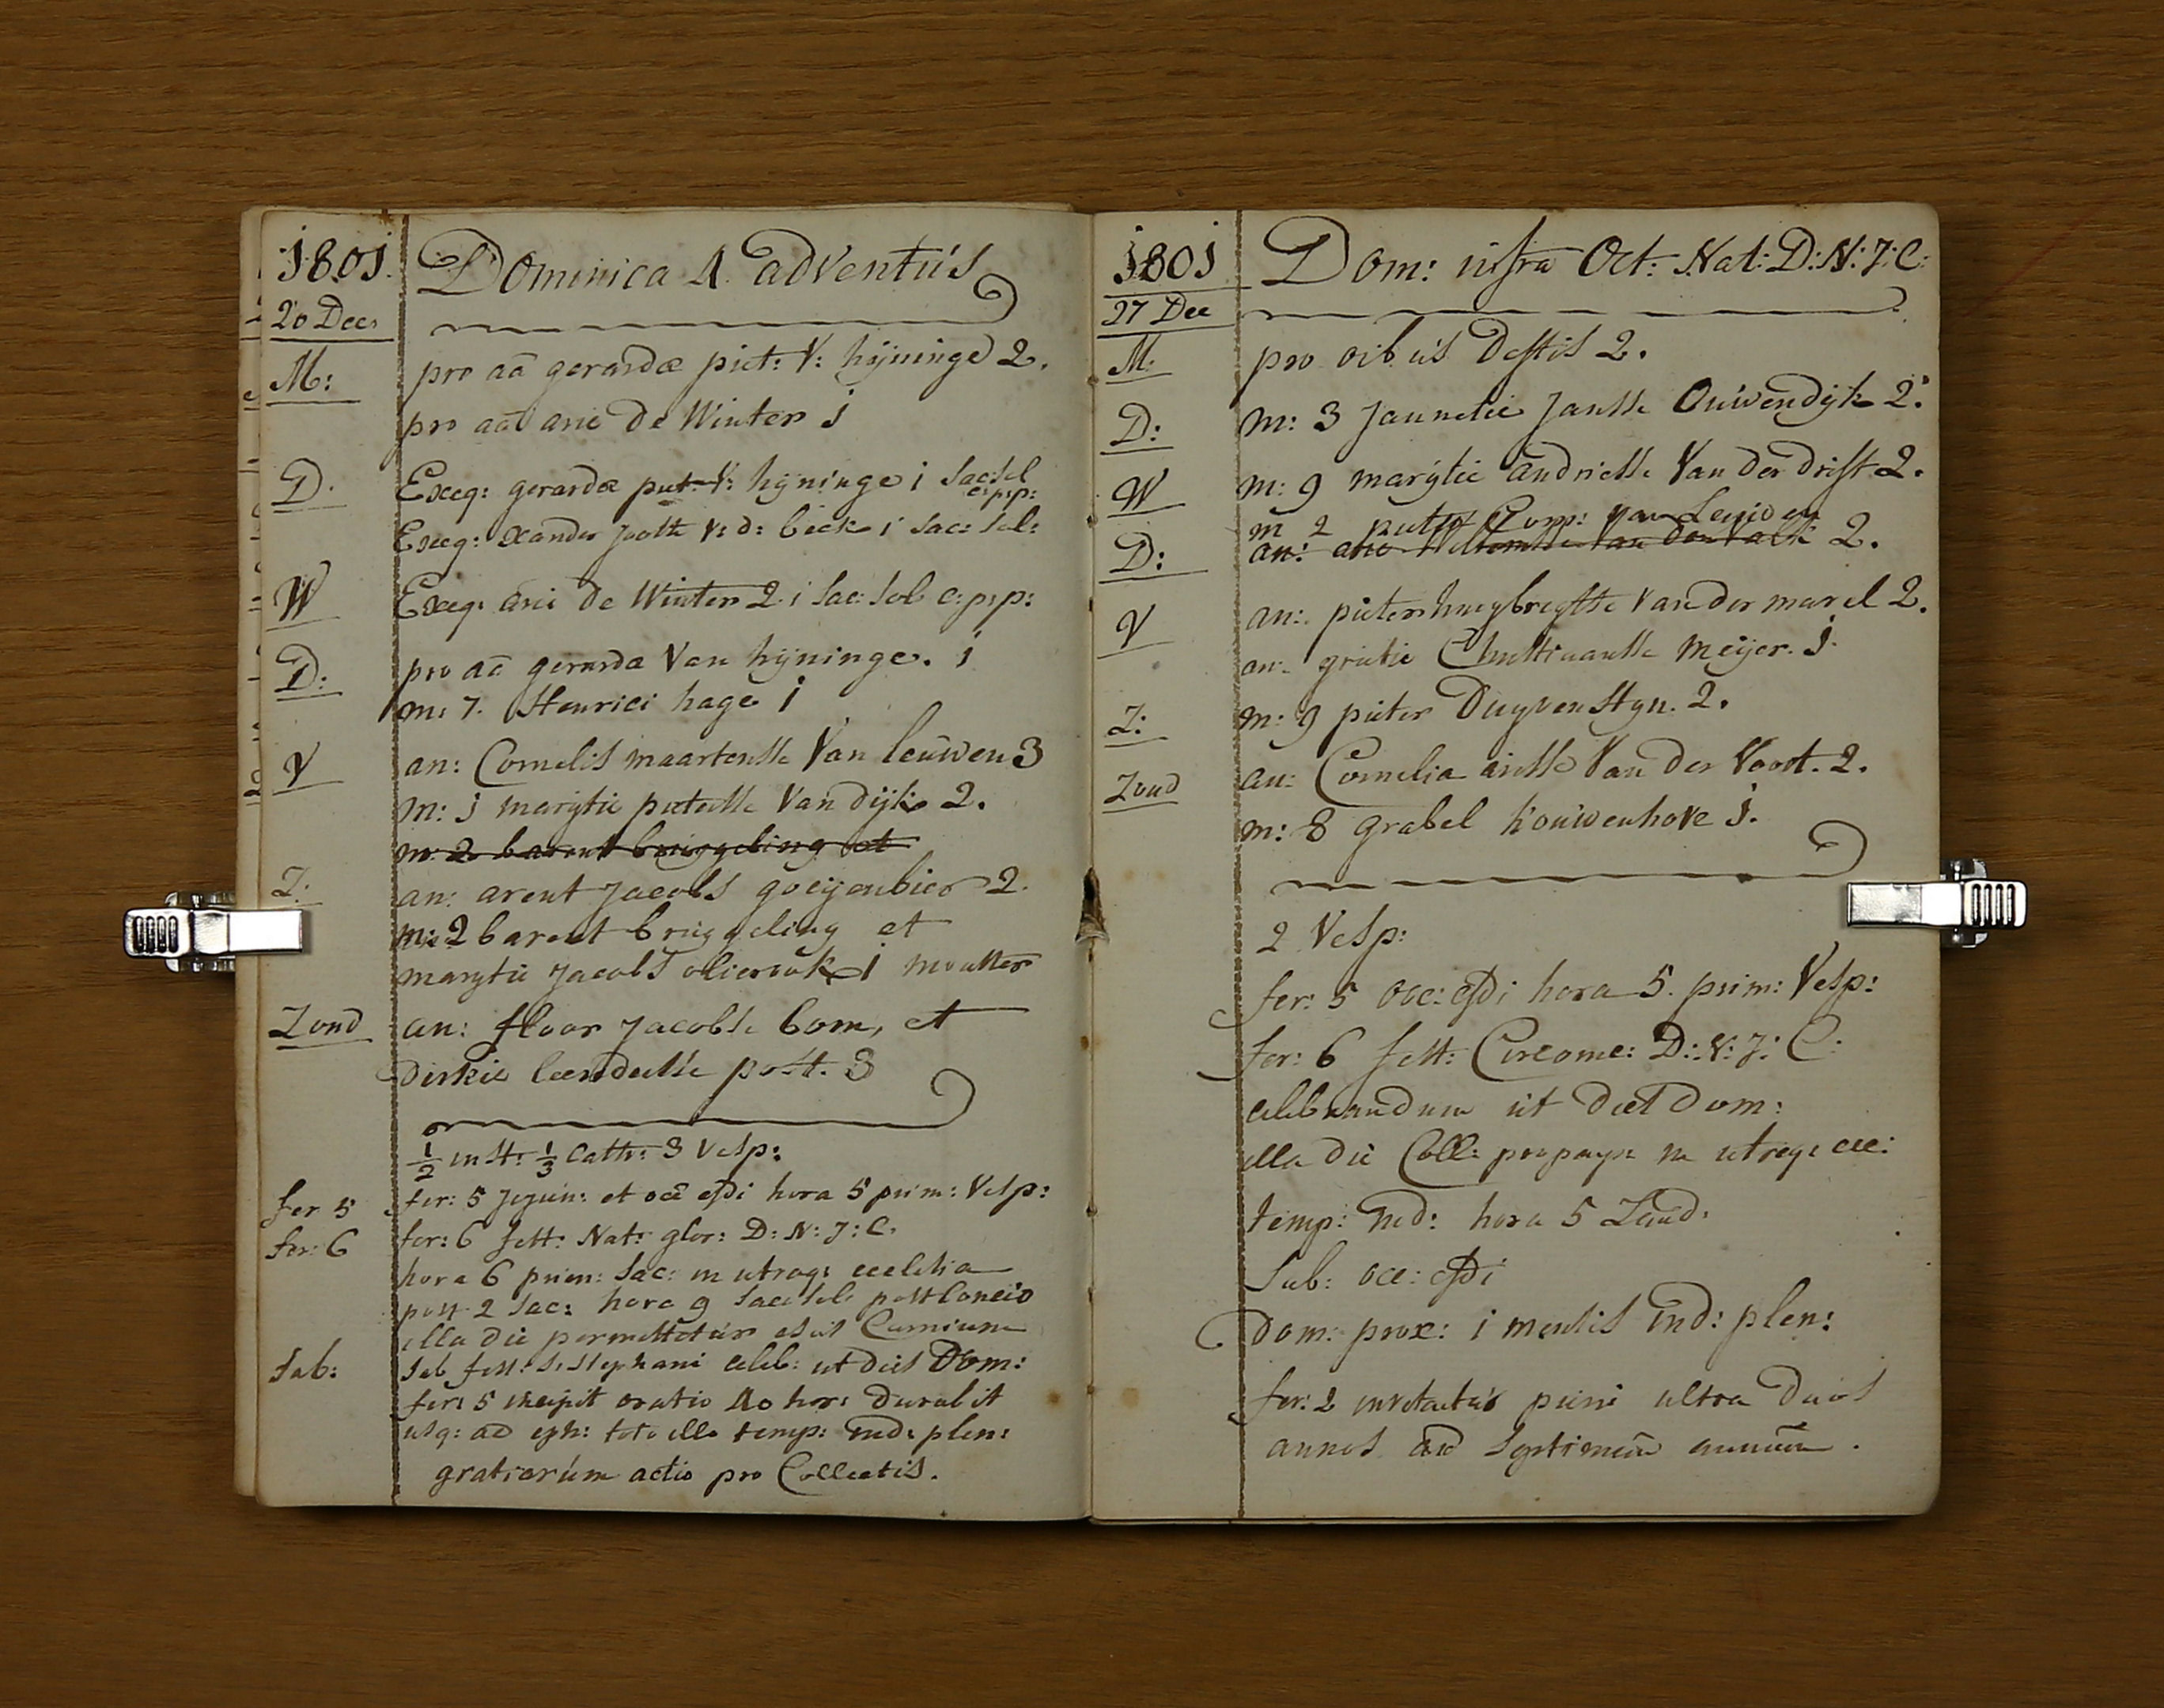 1801. Dominica 4 adventûs
20 Dec.
M: pro aã gerardæ piet: V: hijninge 2.
pro aã arie de Winter j
D. Exeq: gerardæ piet: V: hijninge i sac: sol
c: p: p:
Exeq: xander jooste v: d: beek i sac: sol:
W Exeq: arie de Winter 2. i sac: sol c: p: p:
D: pro aã gerardæ Van hijninge. j
m: 7. Henrici hage j
V an: Cornelis maartensse Van leûwen 3
m: j marijtie pietersse Van dijk 2.
m: 2 barent bruggeling et
Z: an: arent Jacobs goeijenbier 2.
m: 2 barent bruggeling et
marytie Jacobs olierook j
Zond an: floor Jacobse bom, et
dirkie leendertse post. 3
1/2 in st: 1/3 Cath: 3 Vesp:
fer 5 fer: 5 jejun: et occ̃ csdi hora 5 prim: Vesp:
fer: 6 fer: 6 fest: Nat: glor: D: N: J: C.
hora 6 prim: sac: in utraq: ecclesia
post 2 sac: hora 9 sac: sol: post Concio
illa die permittetûr esus Carnium
sab: sab fest: S: Stephani celeb: ut dies Dom:
fer: 5 incipit oratio 40 hor: durabit
usq: ad eph: toto illo temp: ind: plen:
gratiarûm actio pro Collectis.
1801 Dom: infra Oct: Nat: D: N: J: C:
27 Dec
M: pro oibûs deftis 2.
D: m: 3 Jannetie Jansse Oûwendijk 2.
W m: 9 marijtie andriesse Van der drift 2.
m 2 pieter Corn: van Leuwen
D: an: arie Willemsse Van der Valk 2.
V an: pieter huegbregtse Van der marel 2.
an: grietie Christiaansse Meijer. j.
Z: m: 9 pieter Duyvensteyn. 2.
Zond an: Cornelia aresse Van der Voort. 2.
m: 8 grabel koûwenhove j.
2 Vesp:
fer: 5 occ: csdi hora 5. prim: Vesp:
fer: 6 fest: Circomc: D: N: J: C:
celebrandum ut diet Dom:
illa die Coll: pro paup: in utraq: ecc:
temp: ind: hora 5 Laud.
Sab: occ: csdi
dom: prox: i mensis ind: plen:
fer: 2 invitantûr pueri ultra duos
annos ad septimum annum.